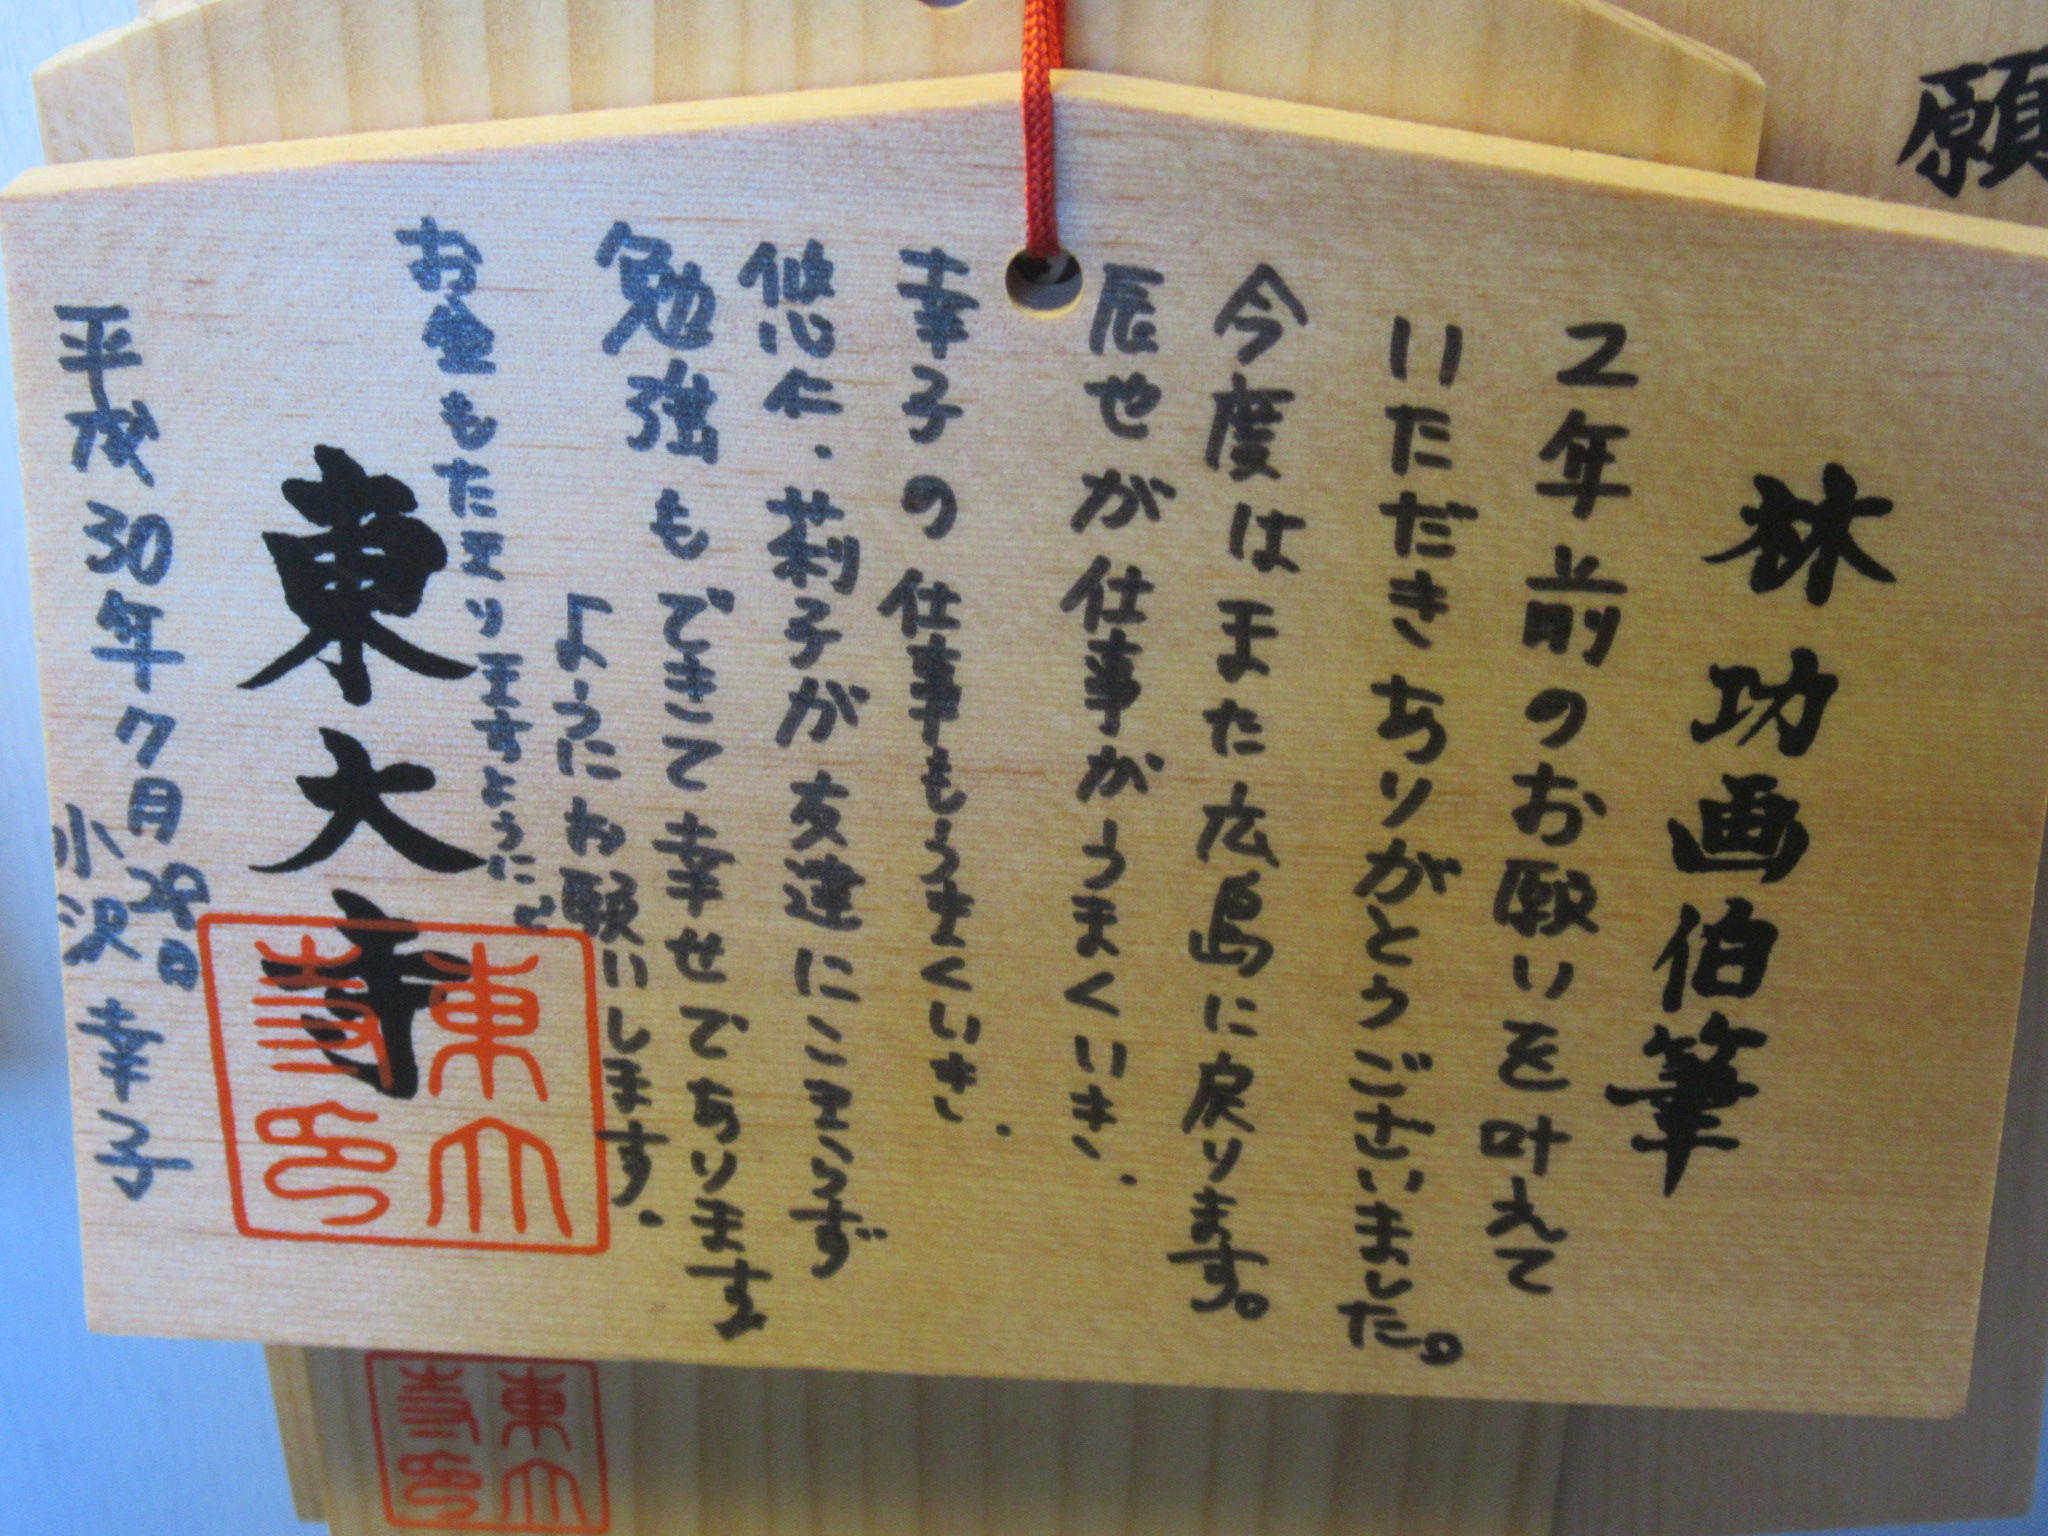 願
林功画伯筆
2年前のお願いを叶えて
いただきありがとうございました。
今度はまた広島に戻ります。
辰也が仕事がうまくいき、
幸子の仕事もうまくいき、
悠仁、莉子が友達にこまらず
勉強もできて幸せであります
ようにお願いします。
お金もたまりますように
東大寺
平成30年7月29日
小沢 幸子
東大寺印
東大寺印